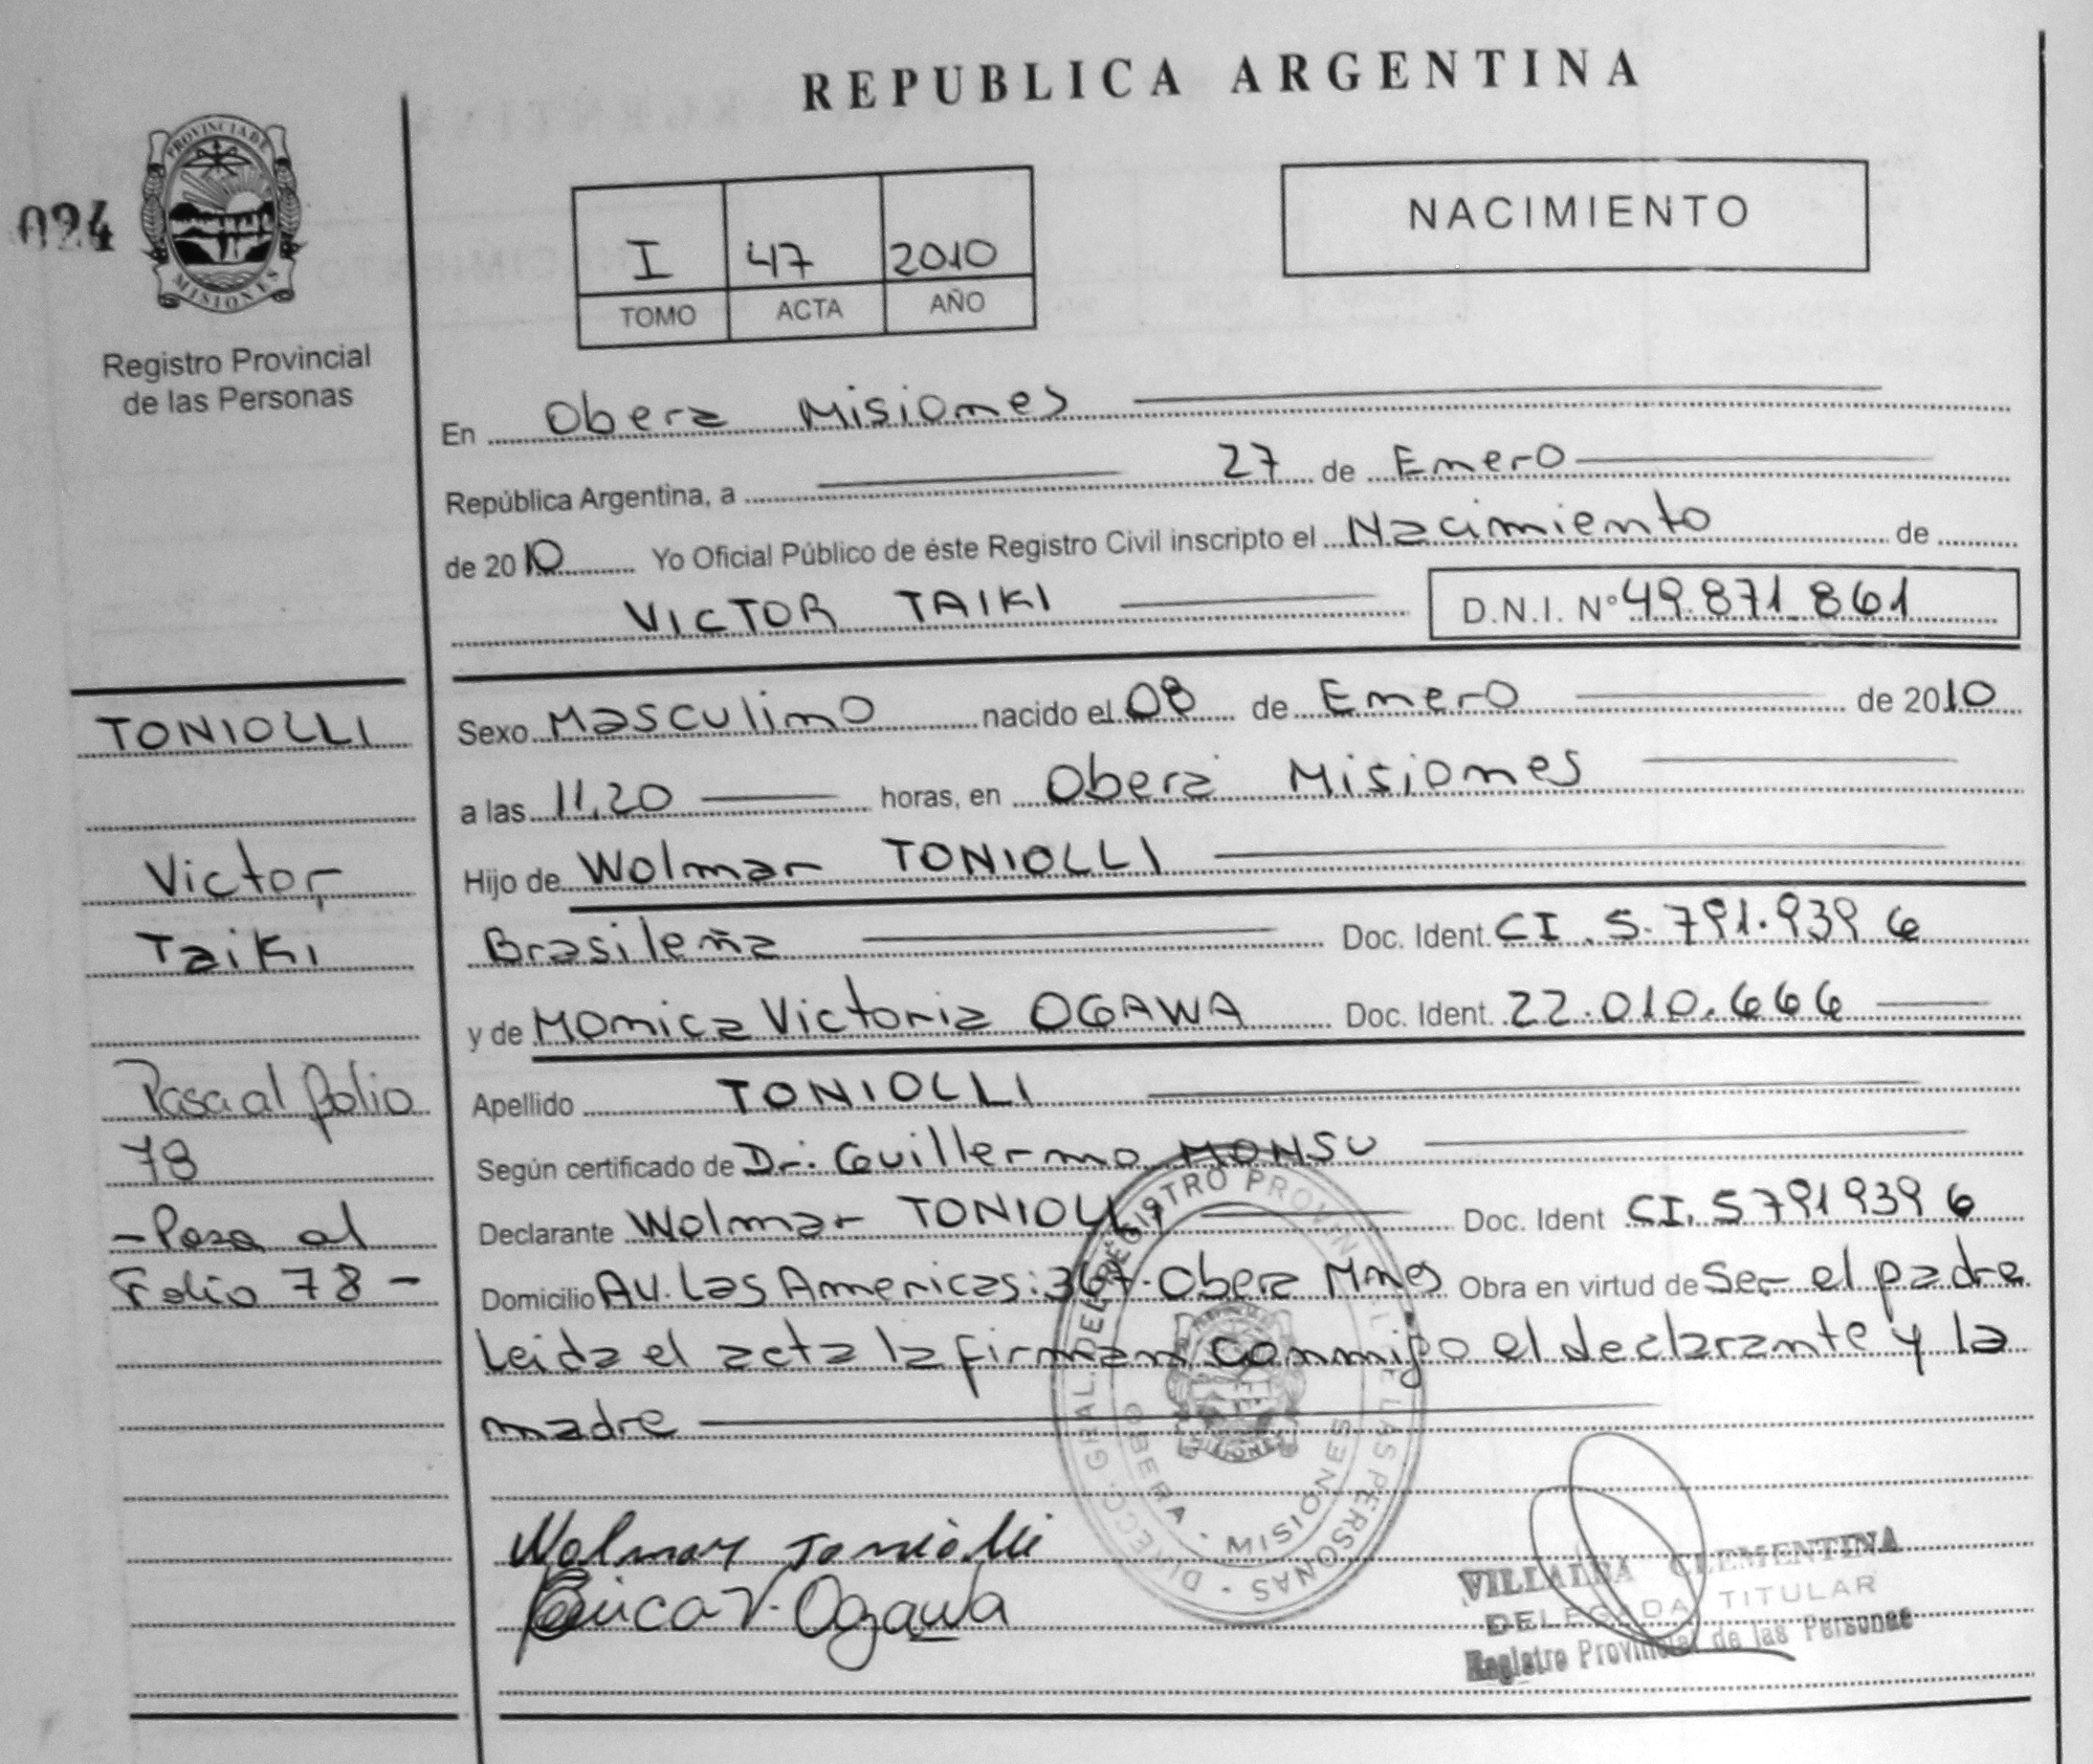 REPUBLICA ARGENTINA
024
PROVINCIA DE
MISIONES
Registro Provincial
de las Personas
I 47 2010
TOMO ACTA AÑO
NACIMIENTO
En Obera Misiones
República Argentina, a 27 de Enero
de 2010 Yo Oficial Público de éste Registro Civil inscripto el Nacimiento de
VICTOR TAIKI D.N.I. Nº 49.871.861
TONIOLLI
Victor
Taiki
Pasa al folio
78
- Pasa al
Folio 78 -
Sexo Masculino nacido el 08 de Enero de 2010
a las 11,20 horas, en Oberá Misiones
Hijo de Wolmar TONIOLLI
Brasileña Doc. Ident. CI. 5.791.939 6
y de Monica Victoria OGAWA Doc. Ident. 22.010.666
Apellido TONIOLLI
Según certificado de Dr: Guillermo MONSU
Declarante Wolmar TONIOLLI Doc. Ident CI. 5791939 6
Domicilio Av. Las Americas: 367. Obera Mnes Obra en virtud de Ser el padre
Leida el acta la firman conmigo el declarante y la
madre
DIRECC. GRAL. DEL REGISTRO PROVINCIAL DE LAS PERSONAS
OBERA - MISIONES
Wolmar Toniolli
V. Ogawa
VILLALBA CLEMENTINA
DELEGADA TITULAR
Registro Provincial de las Personas